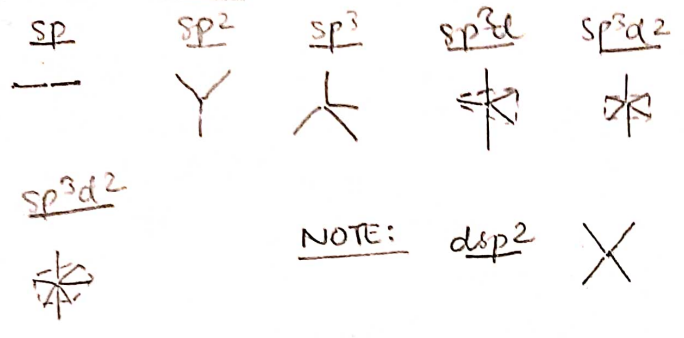 sp sp² sp³ sp³d sp³d²
sp³d²
NOTE: dsp2